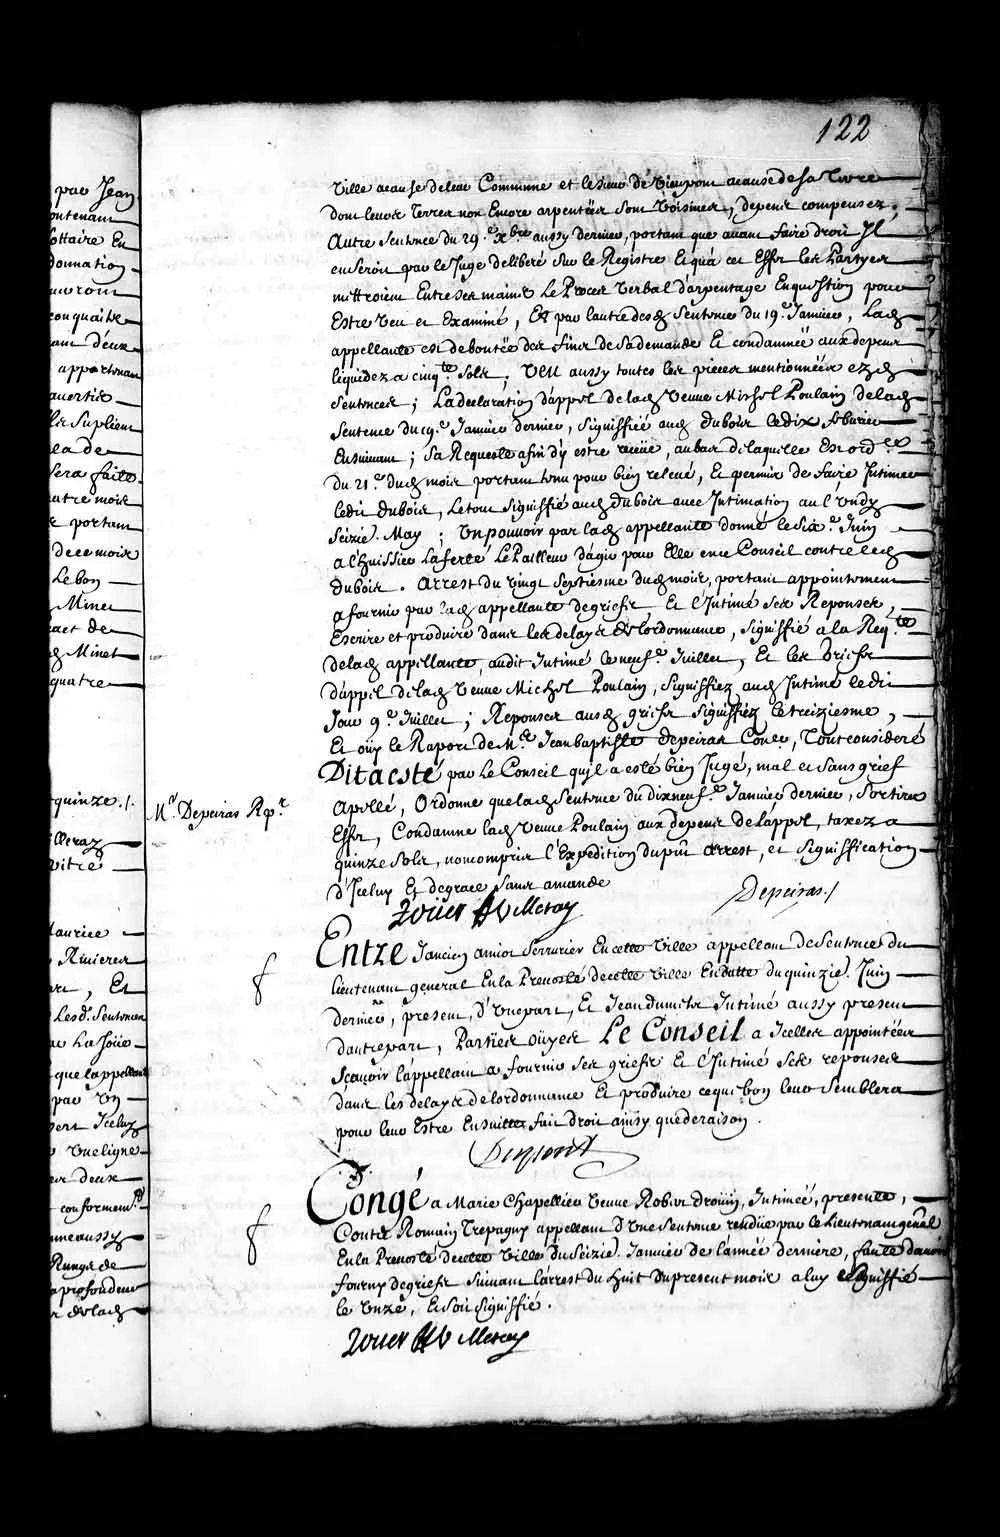 122
par Jean
ontenant
Nottaire En
donnation
auront
conquaite
ant déux
appartenant
avertir
Le Suplient
en de
sera faite
quatre mois
portant
de ce mois
Le bon
Minet
act de
Minet
quatre
quinze ./.
Maurice
Rivieres
, Et
Lesd. Sentences
La Joüe
que lappellant
par Un
Icelluy
Une ligne
deux
conformem.t
anneaussy
Rangs de
la profondeur
de lad
ville acause deleur Commune et le Sieur de Vieupont acause de sa Terre
dont leurs terres non Encore arpentées sont voisines, depens compensez.
Autre Sentence du 29.e Xbre. aussy dernier, portant que avant faire droit Il
en seroit par le Juge deliberé sur le Registre Et qu'à cet Effet les Partyes
mettroient Entre ses mains le Procez Verbal d'arpentage En question pour
Estre Veu et Examiné, Et par l'autre desd Sentence du 19.e Janvier, Lad
appellante est deboutée des fins de sa demande Et condamnée aux depens
liquidez a cinq.te Sols; Veu aussy toutes les pieces mentionnées ezd
Sentences; La declaration d'appel de lad Veuve Michel Poulain de lad
Sentence du 19.e Janvier dernier, Signiffiée aud dubois le dix febvrier
Ensuivant; Sa Requeste afin d'y estre receüe, au bas de laquelle Est ord.ce
du 21.e dud mois portant tenu pour bien relevé, Et permis de faire Intimer
ledit dubois, Le tout signiffié aud dubois avec Intimation au l'Undy
Seizié. May; Un pouvoir par lad appellante donné le six.e Juin
a l'huissier Laferté Le Pailleur d'agir pour Elle en ce Conseil contre led
dubois. Arrest du Vingt Septiesme dud mois, portant appointement
a fournir par lad appellante de griefs Et l'Intimé ses Reponses,
Escrire et produire dans les delays de l'ordonnance, signiffié a la Req.te
de lad appellante, audit Intimé le neuf.e Juillet, Et les Griefs
d'appel de lad Veuve Michel Poulain, signiffiez aud Intimé ledit
Jour 9.e Juillet; Reponses ausd griefs Signiffiéz le treiziesme,
Et oüy le Raport de M.e Jean baptiste depeiras Con.er, Tout consideré
Dit a esté par le Conseil qu'il a esté bien Jugé, mal et sans grief
M.r Depeiras Rp.r
Apellé, Ordonne que lad Sentence du dixneuf.e Janvier dernier, Sortira
Effet, Condamne lad Veuve Poulain aux depens de l'appel, taxez a
quinze Sols, non compris l'Expedition du pn̄t Arrest, et signiffication
d'Iceluy Et de grace Sans amande
Depeiras./
Roüer de Villeray
Entre Jancien Amiot Serrurier En cette Ville appellant de Sentence du
Lieutenant general En la Prevosté de cette Ville En datte du quinzie. Juin
dernier, present, d'Une part, Et Jean dumets Intimé aussy present
d'autre part, Parties oüyes Le Conseil a Icelles appointées
Sçavoir l'appellant a fournir ses griefs Et l'Intimé ses reponses
dans les delays de l'ordonnance Et produire ce qui bon leur Semblera
pour leur Estre Ensuitte fait droit ainsy que de raison.
Dupont
Congé a Marie Chapellier Veuve Robert Droüin, Intimée, presente,
Contre Romain Trepagny appellant d'Une Sentence rendüe par le Lieutenant gen̄al
En la Prevosté de cette Ville du Seizie. Janvier de l'année derniere, faute d'avoir
fourny de griefs Suivant l'arrest du huit du present mois a luy signiffié
le Unze, Et soit signiffié.
Roüer de Villeray